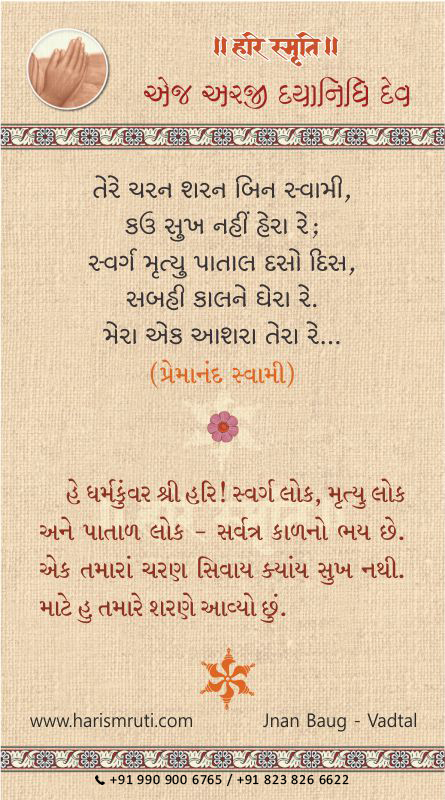 ॥ હરિ સ્મૃતિ ॥
એજ અરજી દયાનિધિ દેવ
તેરે ચરન શરન બિન સ્વામી,
કઉ સુખ નહીં હેરા રે;
સ્વર્ગ મૃત્યુ પાતાલ દસો દિસ,
સબહી કાલને ઘેરા રે.
મેરા એક આશરા તેરા રે...
(પ્રેમાનંદ સ્વામી)
હે ધર્મકુંવર શ્રી હરિ! સ્વર્ગ લોક, મૃત્યુ લોક
અને પાતાળ લોક - સર્વત્ર કાળનો ભય છે.
એક તમારાં ચરણ સિવાય ક્યાંય સુખ નથી.
માટે હુ તમારે શરણે આવ્યો છું.
www.harismruti.com Jnan Baug - Vadtal
+91 990 900 6765 / +91 823 826 6622